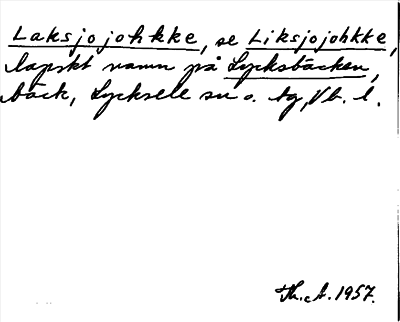 Laksjojohkke, se Liksjojohkke,
lapskt namn på Lycksbäcken,
bäck, Lycksele sn o. tg, Vb. l.
Th. A. 1957.